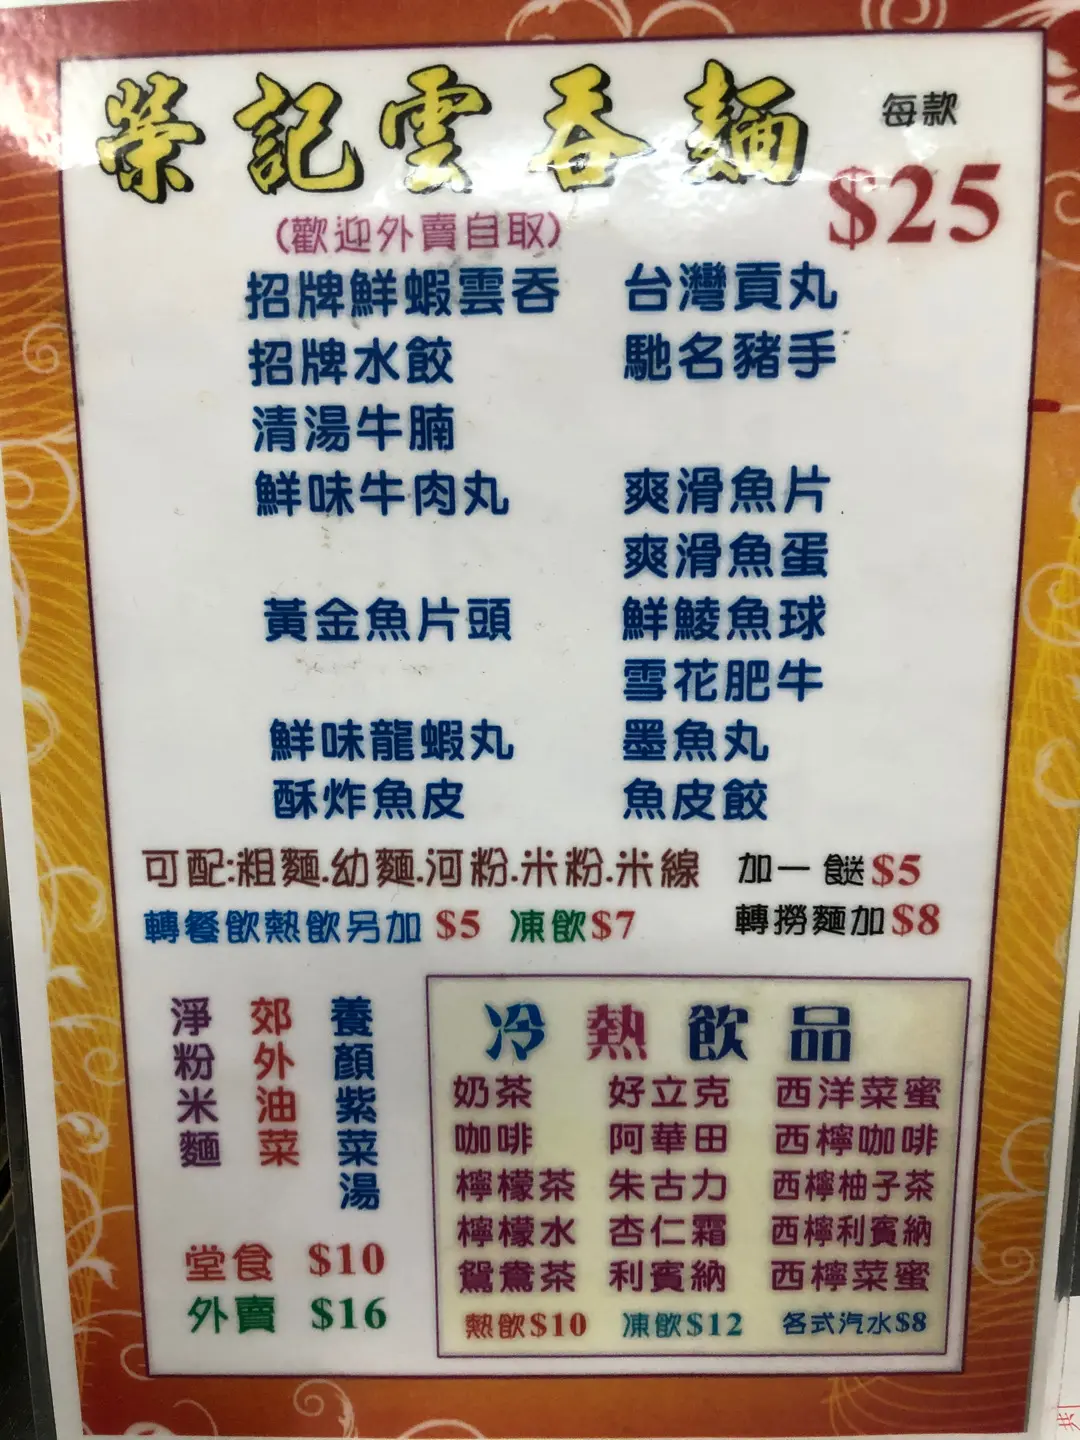 榮記雲吞麵
每款
$25
(歡迎外賣自取)
招牌鮮蝦雲吞 台灣貢丸
招牌水餃 馳名豬手
清湯牛腩
鮮味牛肉丸 爽滑魚片
爽滑魚蛋
黃金魚片頭 鮮鯪魚球
雪花肥牛
鮮味龍蝦丸 墨魚丸
酥炸魚皮 魚皮餃
可配:粗麵.幼麵.河粉.米粉.米線 加一餸$5
轉餐飲熱飲另加 $5 凍飲$7 轉撈麵加$8
淨粉米麵
郊外油菜
養顏紫菜湯
堂食 $10
外賣 $16
冷熱飲品
奶茶 好立克 西洋菜蜜
咖啡 阿華田 西檸咖啡
檸檬茶 朱古力 西檸柚子茶
檸檬水 杏仁霜 西檸利賓納
鴛鴦茶 利賓納 西檸菜蜜
熱飲$10 凍飲$12 各式汽水$8